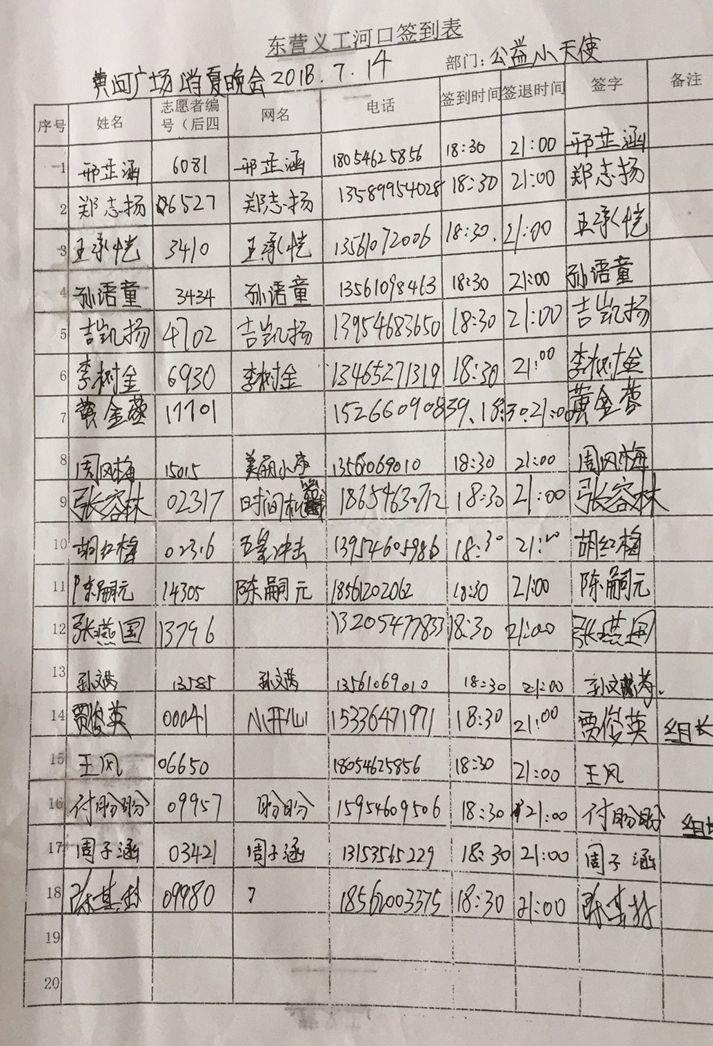 东营义工河口签到表
黄河广场 消夏晚会 2018.7.14 部门:公益小天使
序号 姓名 志愿者编号（后四 网名 电话 签到时间 签退时间 签字 备注
1 邢芷涵 6081 邢芷涵 18054625856 18:30 21:00 邢芷涵
2 郑志扬 06527 郑志扬 13589954028 18:30 21:00 郑志扬
3 王承恺 3410 王承恺 13561072006 18:30. 21:00 王承恺
4 孙语童 3434 孙语童 13561098463 18:30 21:00 孙语童
5 吉凯扬 4702 吉凯扬 13954683650 18:30 21:00 吉凯扬
6 李树金 6930 李树金 13465271319 18:30 21:00 李树金
7 黄金蓉 17701 15266090839. 18:30. 21:00 黄金蓉
8 周风梅 15015 美丽小 13561069010 18:30 21:00 周风梅
9 张容林 02317 时间 18654630712 18:30 21:00 张容林
10 胡红梅 02316 五星冲击 13954605986 18:30 21:00 胡红梅
11 陈嗣元 14305 陈嗣元 18561202062 18:30 21:00 陈嗣元
12 张燕国 13796 13205477833 18:30 21:00 张燕国
13 孙文 13585 孙文 13561069010 18:30 21:00 孙文
14 贾俊英 00041 小开心 15336471971 18:30 21:00 贾俊英 组长
15 王风 06650 18054625856 18:30 21:00 王风
16 付盼盼 09957 盼盼 15954609506 18:30 21:00 付盼盼 组
17 周子涵 03421 周子涵 13153565229 18:30 21:00 周子涵
18 陈其 09980 18562003375 18:30 21:00 陈其
19
20